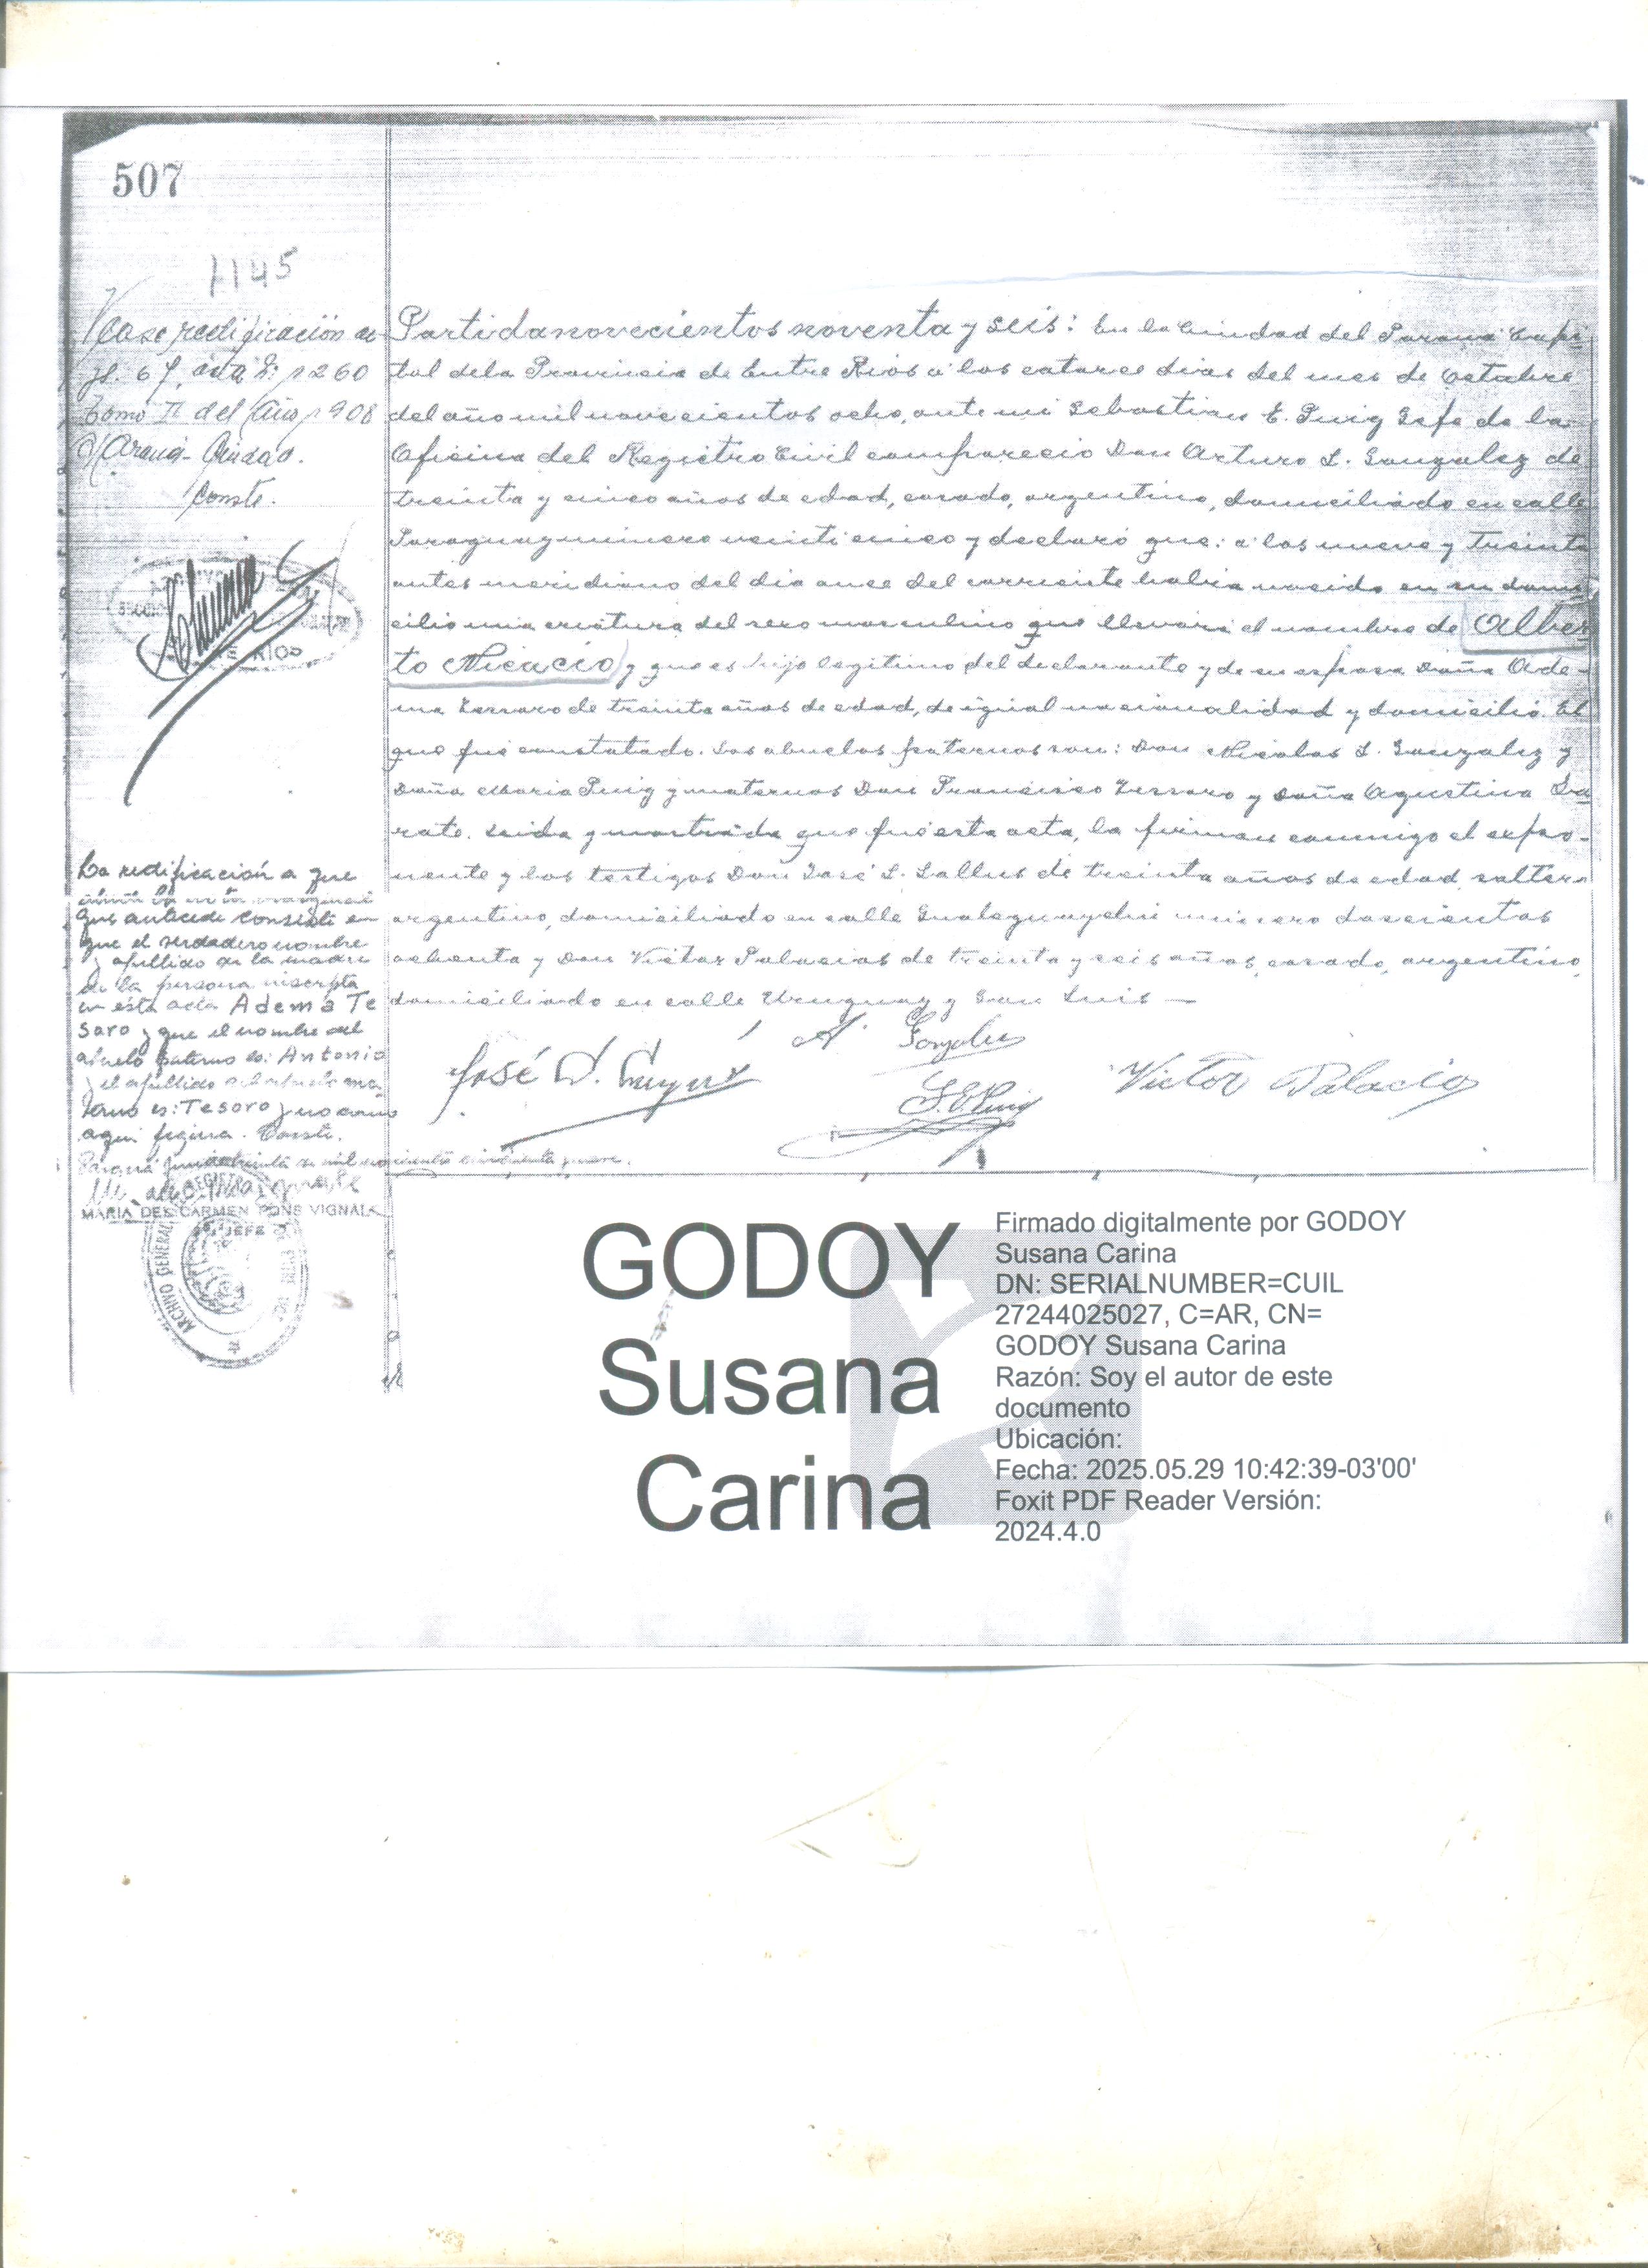 507
1145
Vease rectificación al
fl. 67, acta Nº 1260
tomo II del Año 1908
Paraná-
Conste.
Partida novecientos noventa y seis: En la Ciudad del Paraná Capi-
tal dela Provincia de Entre Rios á los catorce dias del mes de Octubre
del año mil novecientos ocho, ante mi Sebastian E. Puig Gefe de la
Oficina del Registro Civil comparecio Don Arturo L. Gonzalez de
treinta y cinco años de edad, casado, argentino, domiciliado en calle
Paraguay número veinticinco y declaró que: á las nueve y treinta
antes meridiano del dia once del corriente habia nacido en su domi-
cilio una criatura del sexo masculino que llevará el nombre de Alber
to Nicacio y que es hijo legitimo del declarante y de su esposa Doña Ade-
ma Tessaro de treinta años de edad, de igual nacionalidad y domicilio. El
que fué constatado. Los abuelos paternos son: Don Nicolas L. Gonzalez y
Doña Maria Puig y maternos Don Francisco Tessaro y Doña Agustina Za
rate. Leida y mostrada que fué esta acta, la firman conmigo el expo-
nente y los testigos Don José L. de treinta años de edad, soltero
argentino, domiciliado en calle Gualeguaychú número doscientos
ochenta y Don Victor Palacios de treinta y seis años, casado, argentino,
domiciliado en calle Uruguay y San Luis —
La rectificación a que
alude la nota marginal
que antecede consiste en
que el verdadero nombre
y apellido de la madre
de la persona inscripta
en esta acta Adema Te
soro y que el nombre del
abuelo paterno es: Antonio
y el apellido del abuelo ma
terno es: Tesoro y no como
aqui figura. Conste.
Paraná mil novecientos cincuenta
A. Gonzalez
José
S. E. Puig
Victor Palacio
MARIA DEL CARMEN PONS VIGNALE
JEFE
ARCHIVO GENERAL
GODOY
Susana
Carina
Firmado digitalmente por GODOY
Susana Carina
DN: SERIALNUMBER=CUIL
27244025027, C=AR, CN=
GODOY Susana Carina
Razón: Soy el autor de este
documento
Ubicación:
Fecha: 2025.05.29 10:42:39-03'00'
Foxit PDF Reader Versión:
2024.4.0